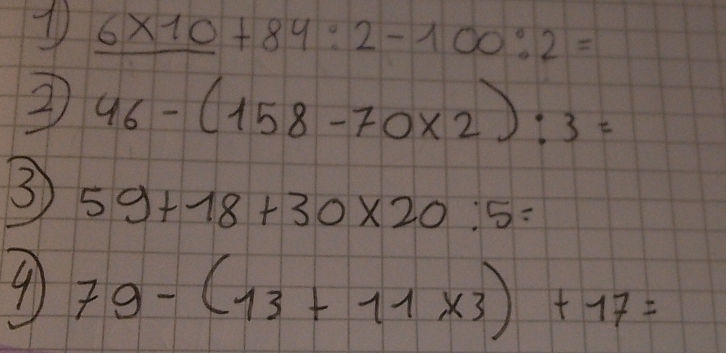 1) 6×10+84:2-100:2=
2) 46-(158-70×2):3=
3) 59+18+30×20:5=
4) 79-(13+11×3)+17=